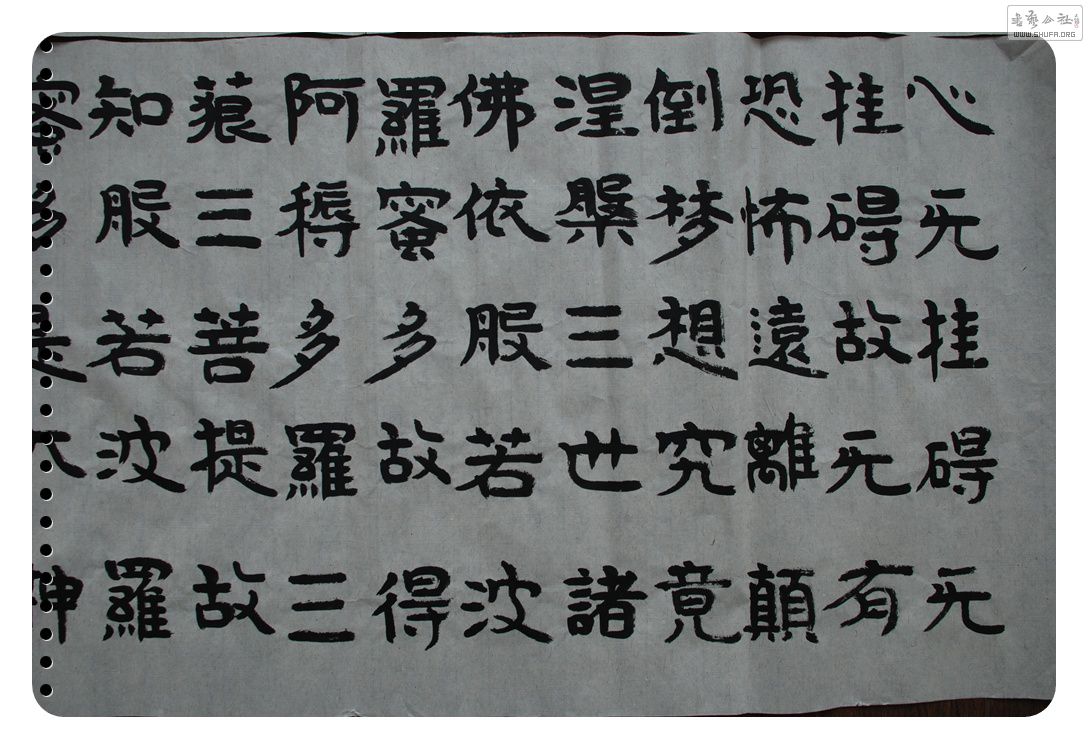 心无挂碍无
挂碍故无有
恐怖遠離顛
倒梦想究竟
涅槃三世諸
佛依般若波
羅蜜多故得
阿耨多羅三
藐三菩提故
知般若波羅
蜜多是大神
书艺公社
WWW.SHUFA.ORG